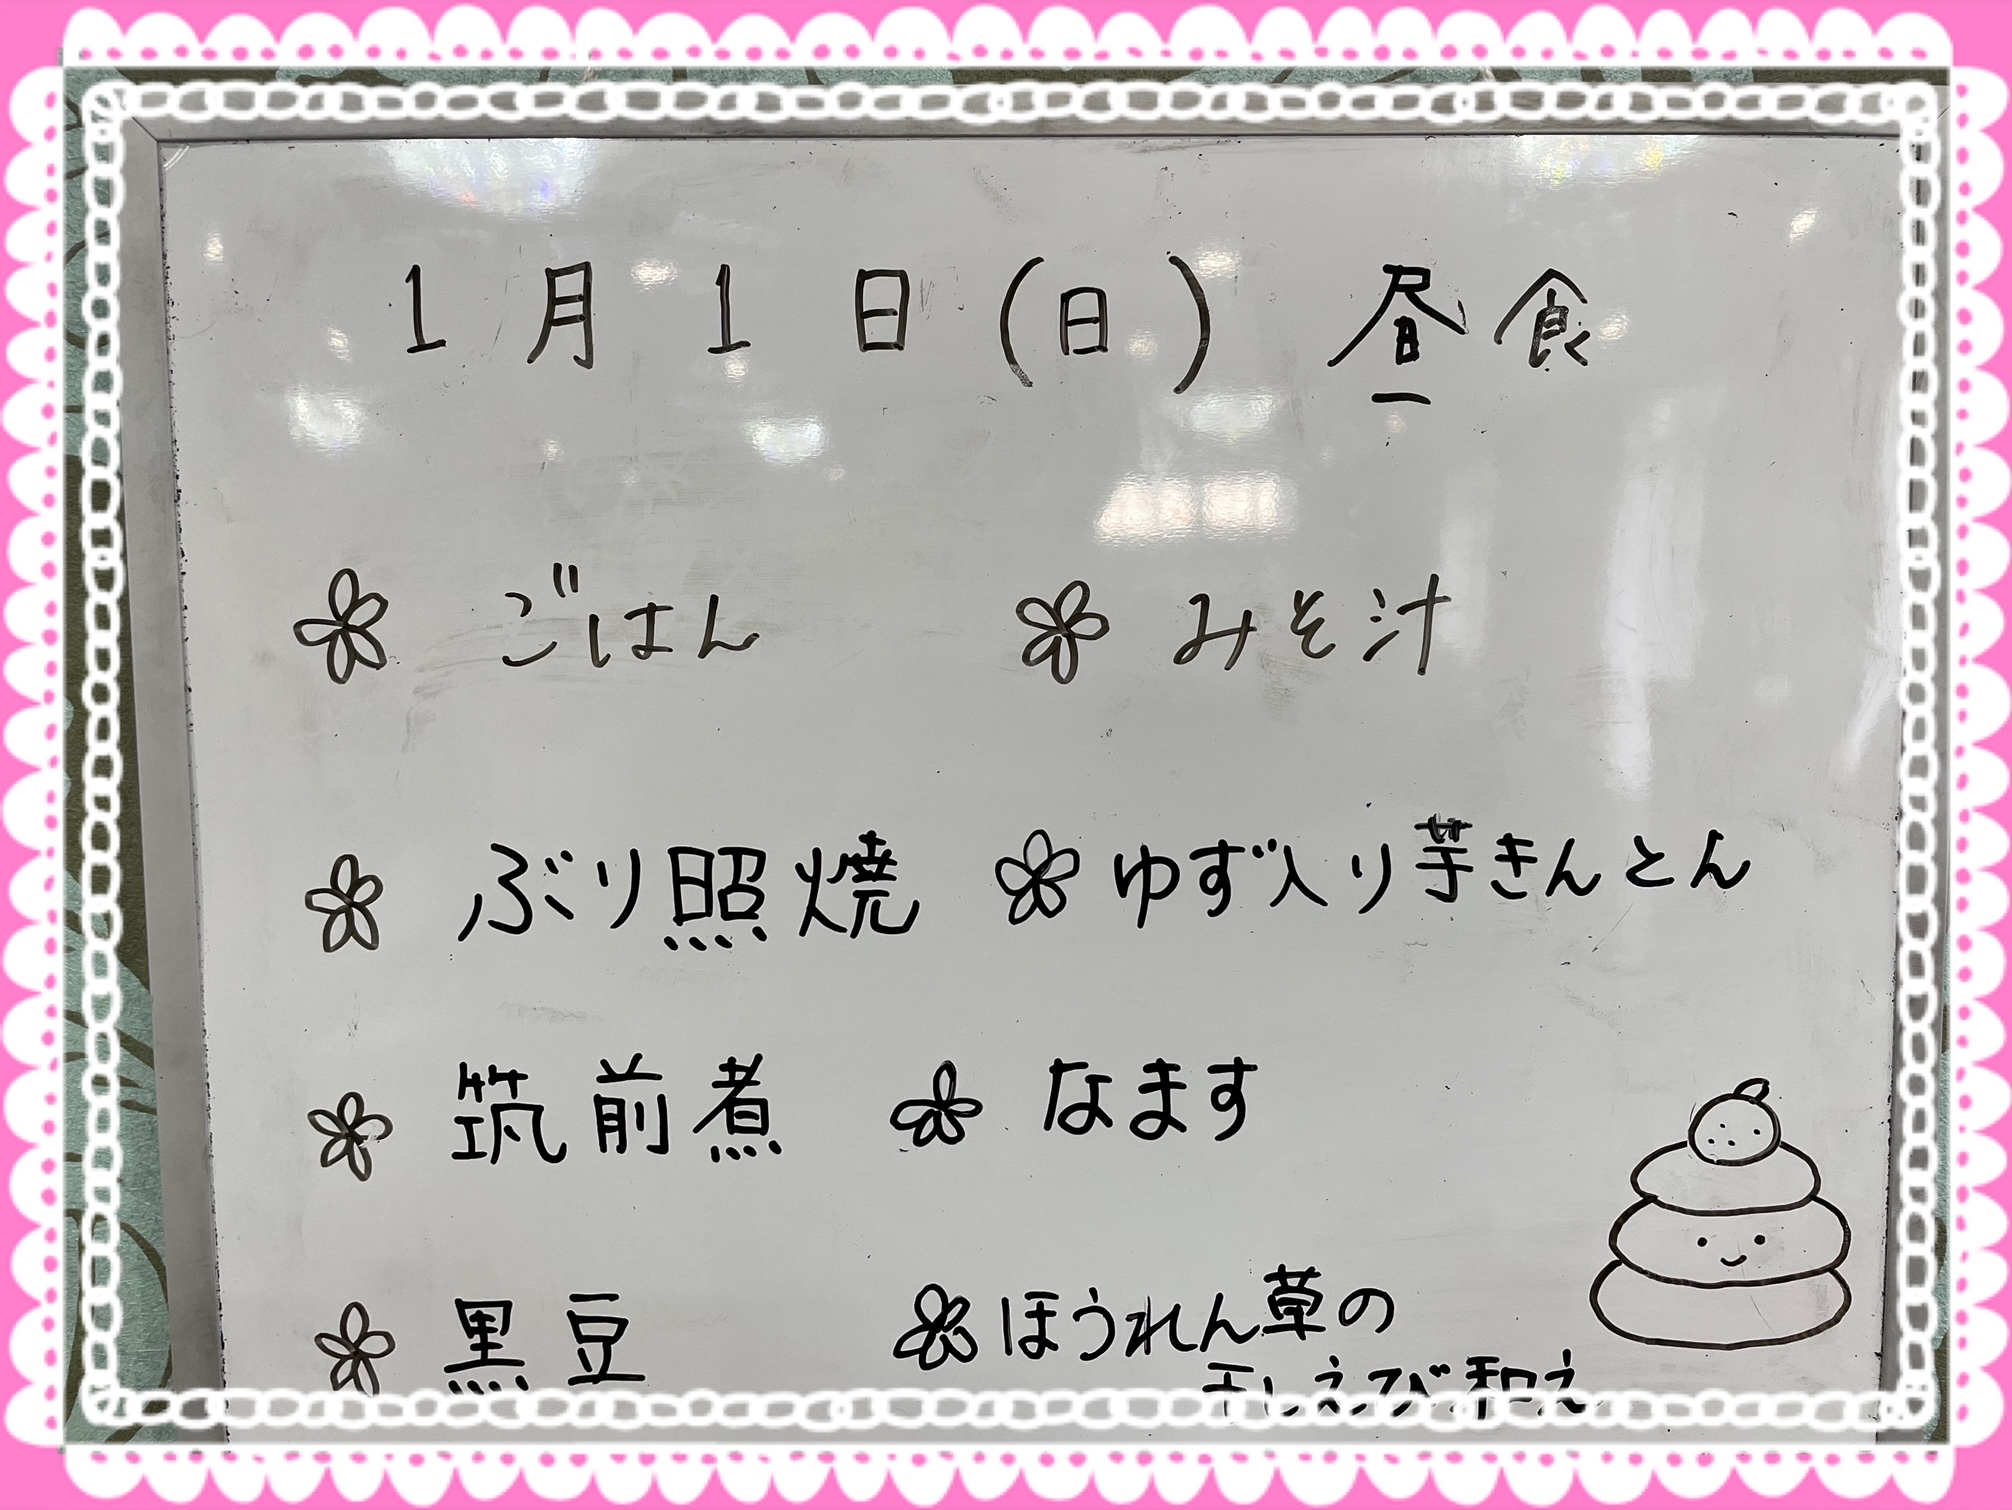 1月1日(日) 昼食
ごはん
みそ汁
ぶり照焼
ゆず入り芋きんとん
筑前煮
なます
黒豆
ほうれん草の
干しえび和え